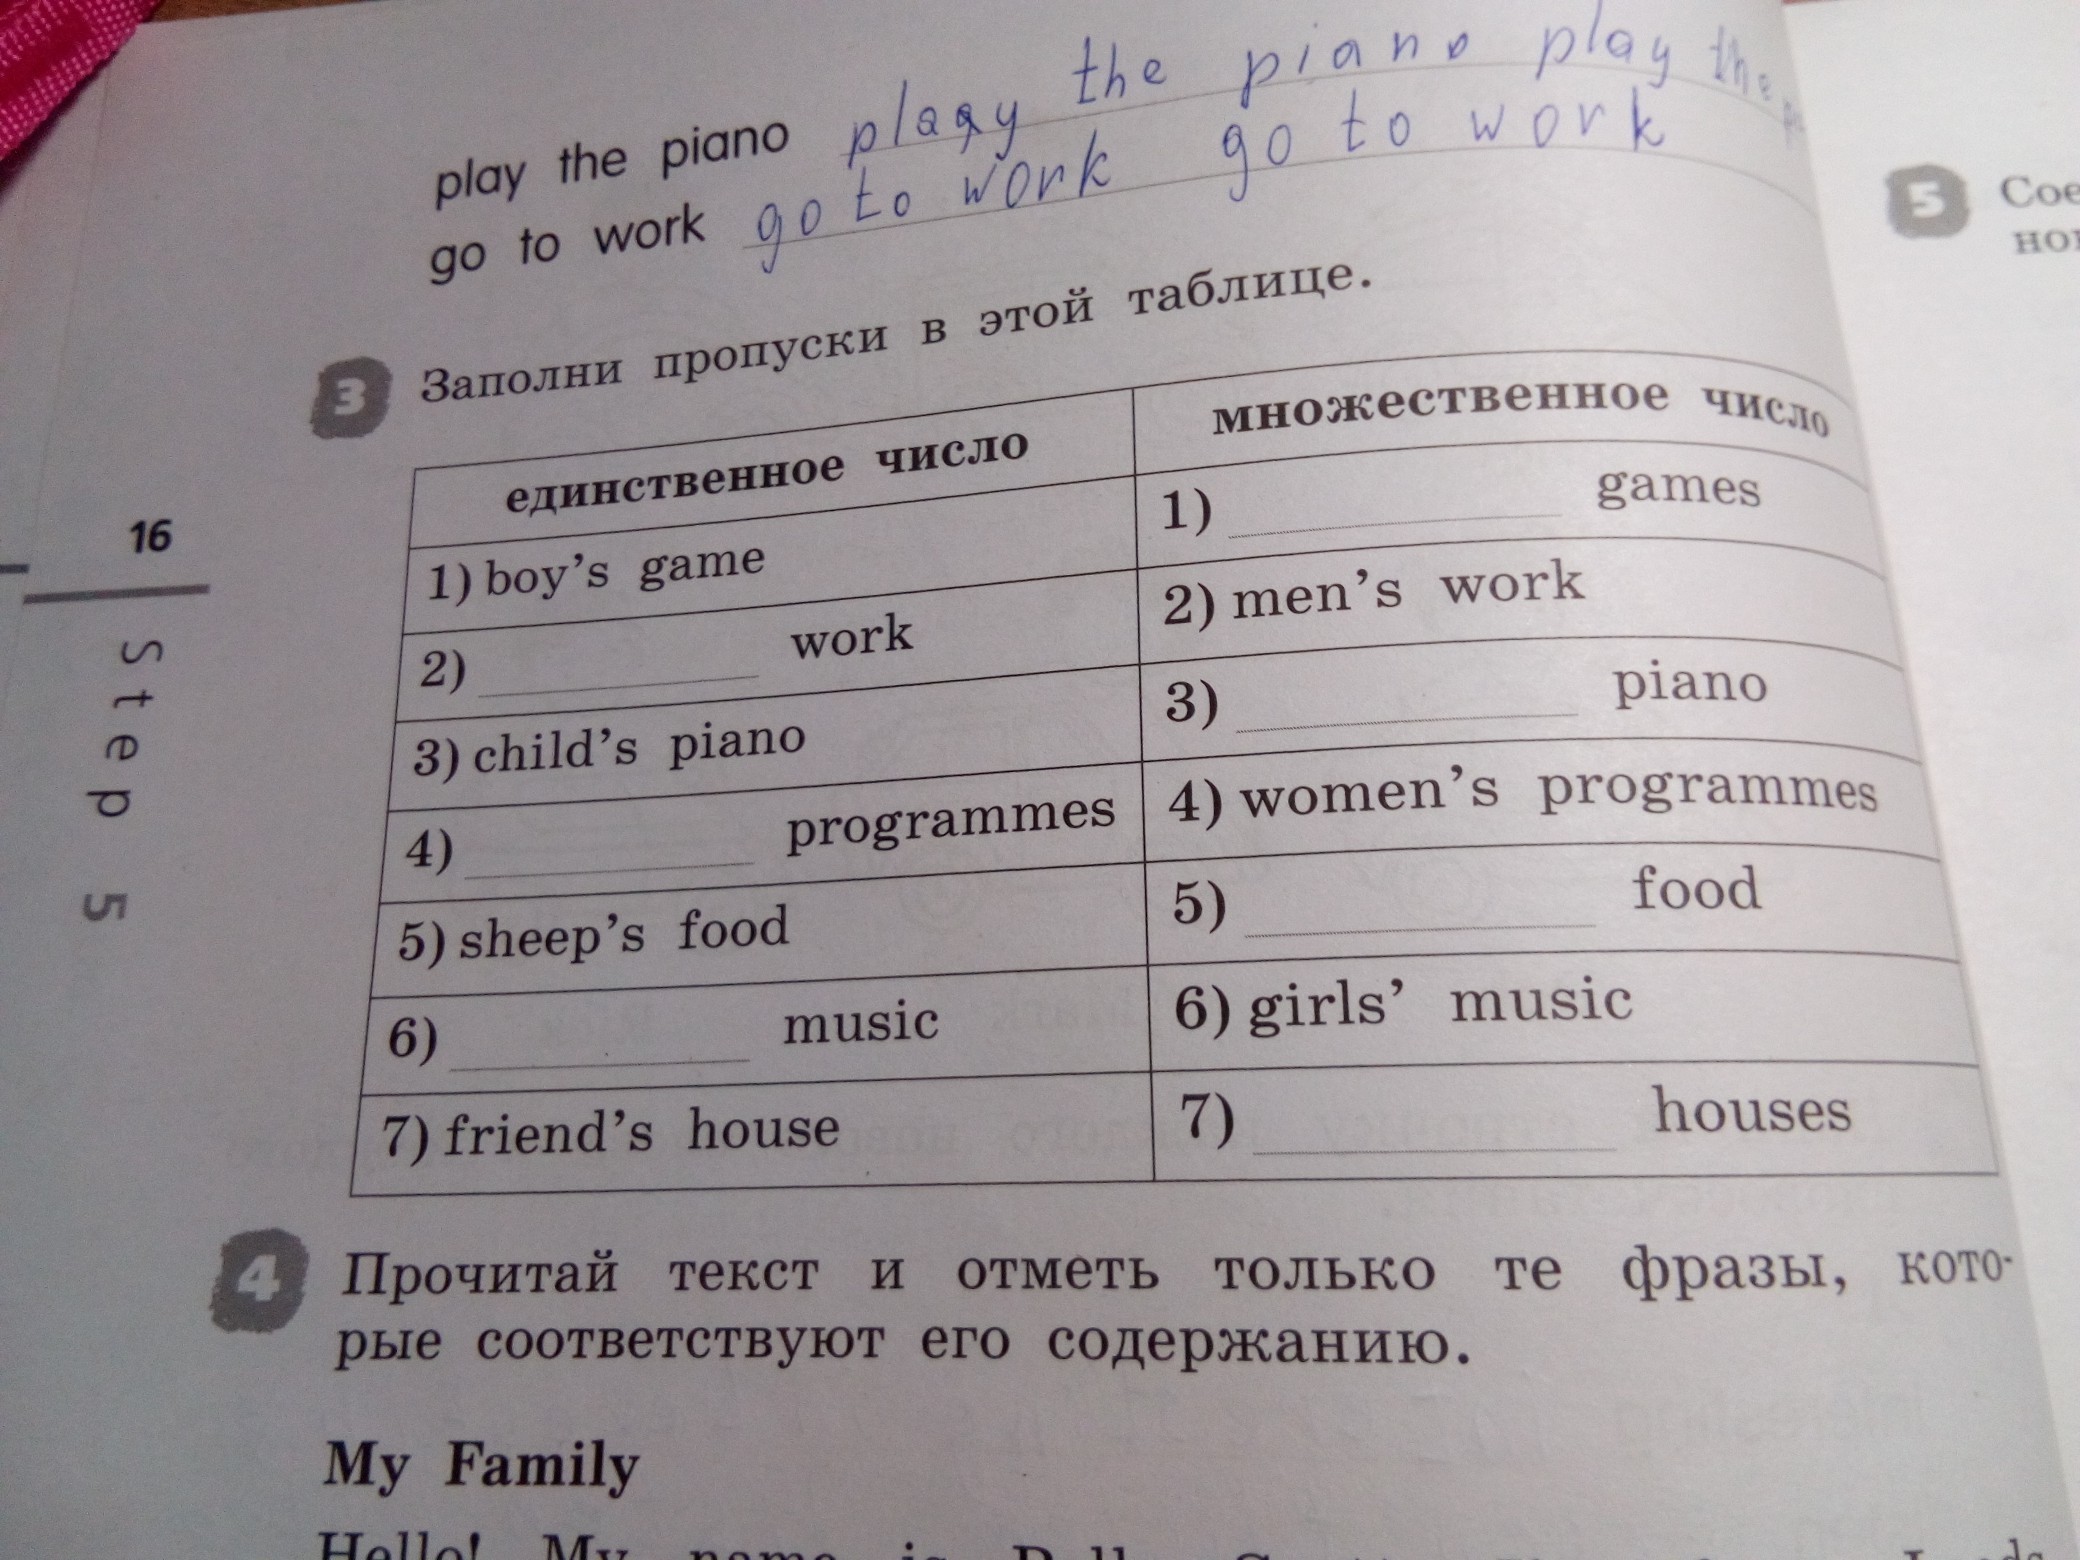 play the piano plaqy the piano play the
go to work go to work go to work
3 Заполни пропуски в этой таблице.
единственное число множественное число
1) boy's game 1) games
2) work 2) men's work
3) child's piano 3) piano
4) programmes 4) women's programmes
5) sheep's food 5) food
6) music 6) girls' music
7) friend's house 7) houses
4 Прочитай текст и отметь только те фразы, кото-
рые соответствуют его содержанию.
My Family
Hello! My name is
16
Step 5
5 Сое